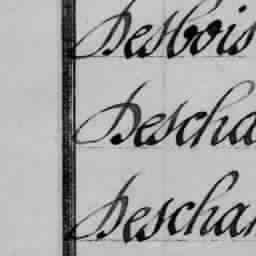 Desbois
Descha
Deschar